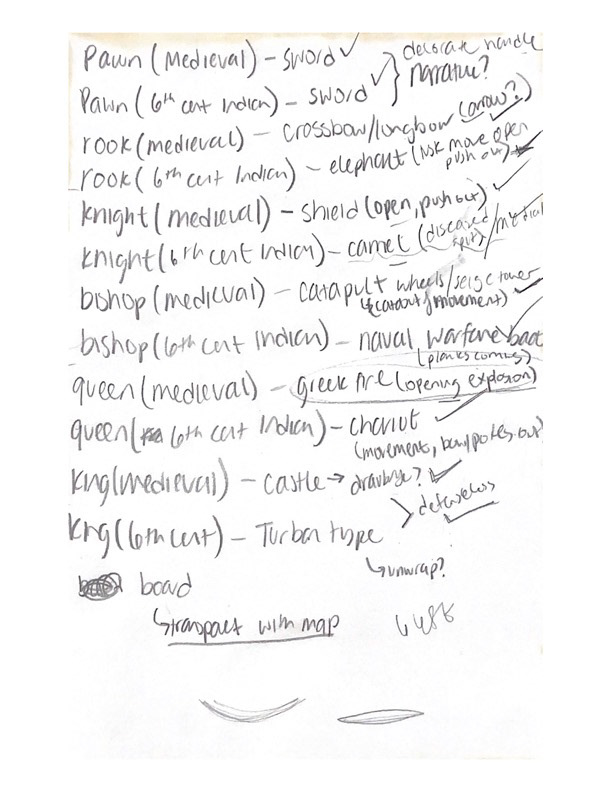 Pawn (Medieval) – sword ✓ decorate handle
Pawn (6th cent Indian) – sword ✓ narrative?
rook (medieval) – crossbow/longbow (arrow?)
rook (6th cent Indian) – elephant (tusk move open
push out)
knight (medieval) – shield (open, push out)
knight (6th cent Indian) – camel (
bishop (medieval) – catapult wheels/seige tower
movement)
bishop (6th cent Indian) – naval warfare boat
(planks coming)
queen (medieval) – greek fire (opening explosion)
queen ( 6th cent Indian) – chariot
(movement, out)
King (medieval) – castle → drawbridge?
King (6th cent) – Turban type
↳ unwrap?
board
↳ with map